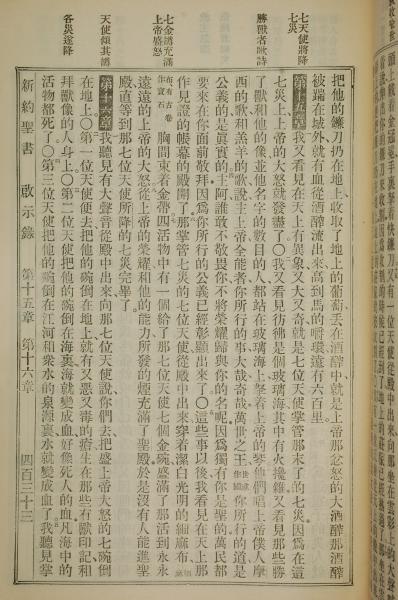 七天使將降
七災
勝獸者歌詩
七金盌充滿
上帝盛怒
天使傾其盌
各災遂降
把他的鐮刀扔在地上收取了地上的葡萄丟在酒醡中就是上帝那忿怒的大酒醡那酒醡
被踹在城外就有血從酒醡流出來高到馬的嚼環遠有六百里
第十五章我又看見在天上有異象又大又奇就是七位天使掌管那末了的七災因爲在這
七災上上帝的大怒就發盡了〇我又看見彷彿是個玻璃海其中有火攙雜又看見那些勝
了獸和他的像並他名字的數目的人都站在玻璃海上拿着上帝的琴他們唱上帝僕人摩
西的歌和羔羊的歌說主上帝全能者你所行的事大哉奇哉萬世之王你所行的道是
公義的是眞實的主阿誰敢不敬畏你不將榮耀歸與你的名呢因爲獨有你是聖的萬民都
要來在你面前敬拜因爲你所行的公義已經彰顯出來了〇這些事以後我看見在天上那
作見證的帳幕的殿開了那掌管七災的七位天使從殿中出來穿着潔白光明的細麻布
有古卷作寶石胸間束着金帶四活物中有一個給了那七位天使七個金碗盛滿了那活到永永
遠遠的上帝的大怒從上帝的榮耀和他的能力所發的煙充滿了聖殿於是沒有人能進聖
殿直等到那七位天使所降的七災完畢了
第十六章我聽見有大聲音從殿中出來向那七位天使說你們去把盛上帝大怒的七碗倒
在地上〇第一位天使便去把他的碗倒在地上就有又惡又毒的瘡生在那些有獸印記和
拜獸像的人身上〇第二位天使把他的碗倒在海裏海就變成血好像死人的血凡海中的
活物都死了〇第三位天使把他的碗倒在江河和衆水的泉源裏水就變成血了我聽見掌
新約聖書 啟示錄 第十五章 第十六章 四百三十三